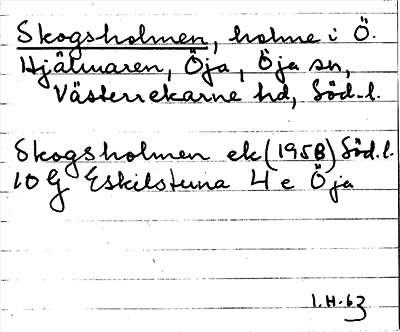 Skogsholmen, holme i Ö.
Hjälmaren, Öja, Öja sn,
Västerrekarne hd, Söd.l.
Skogsholmen ek (1958) Söd.l.
10G Eskilstuna 4 e Öja
I.H.63